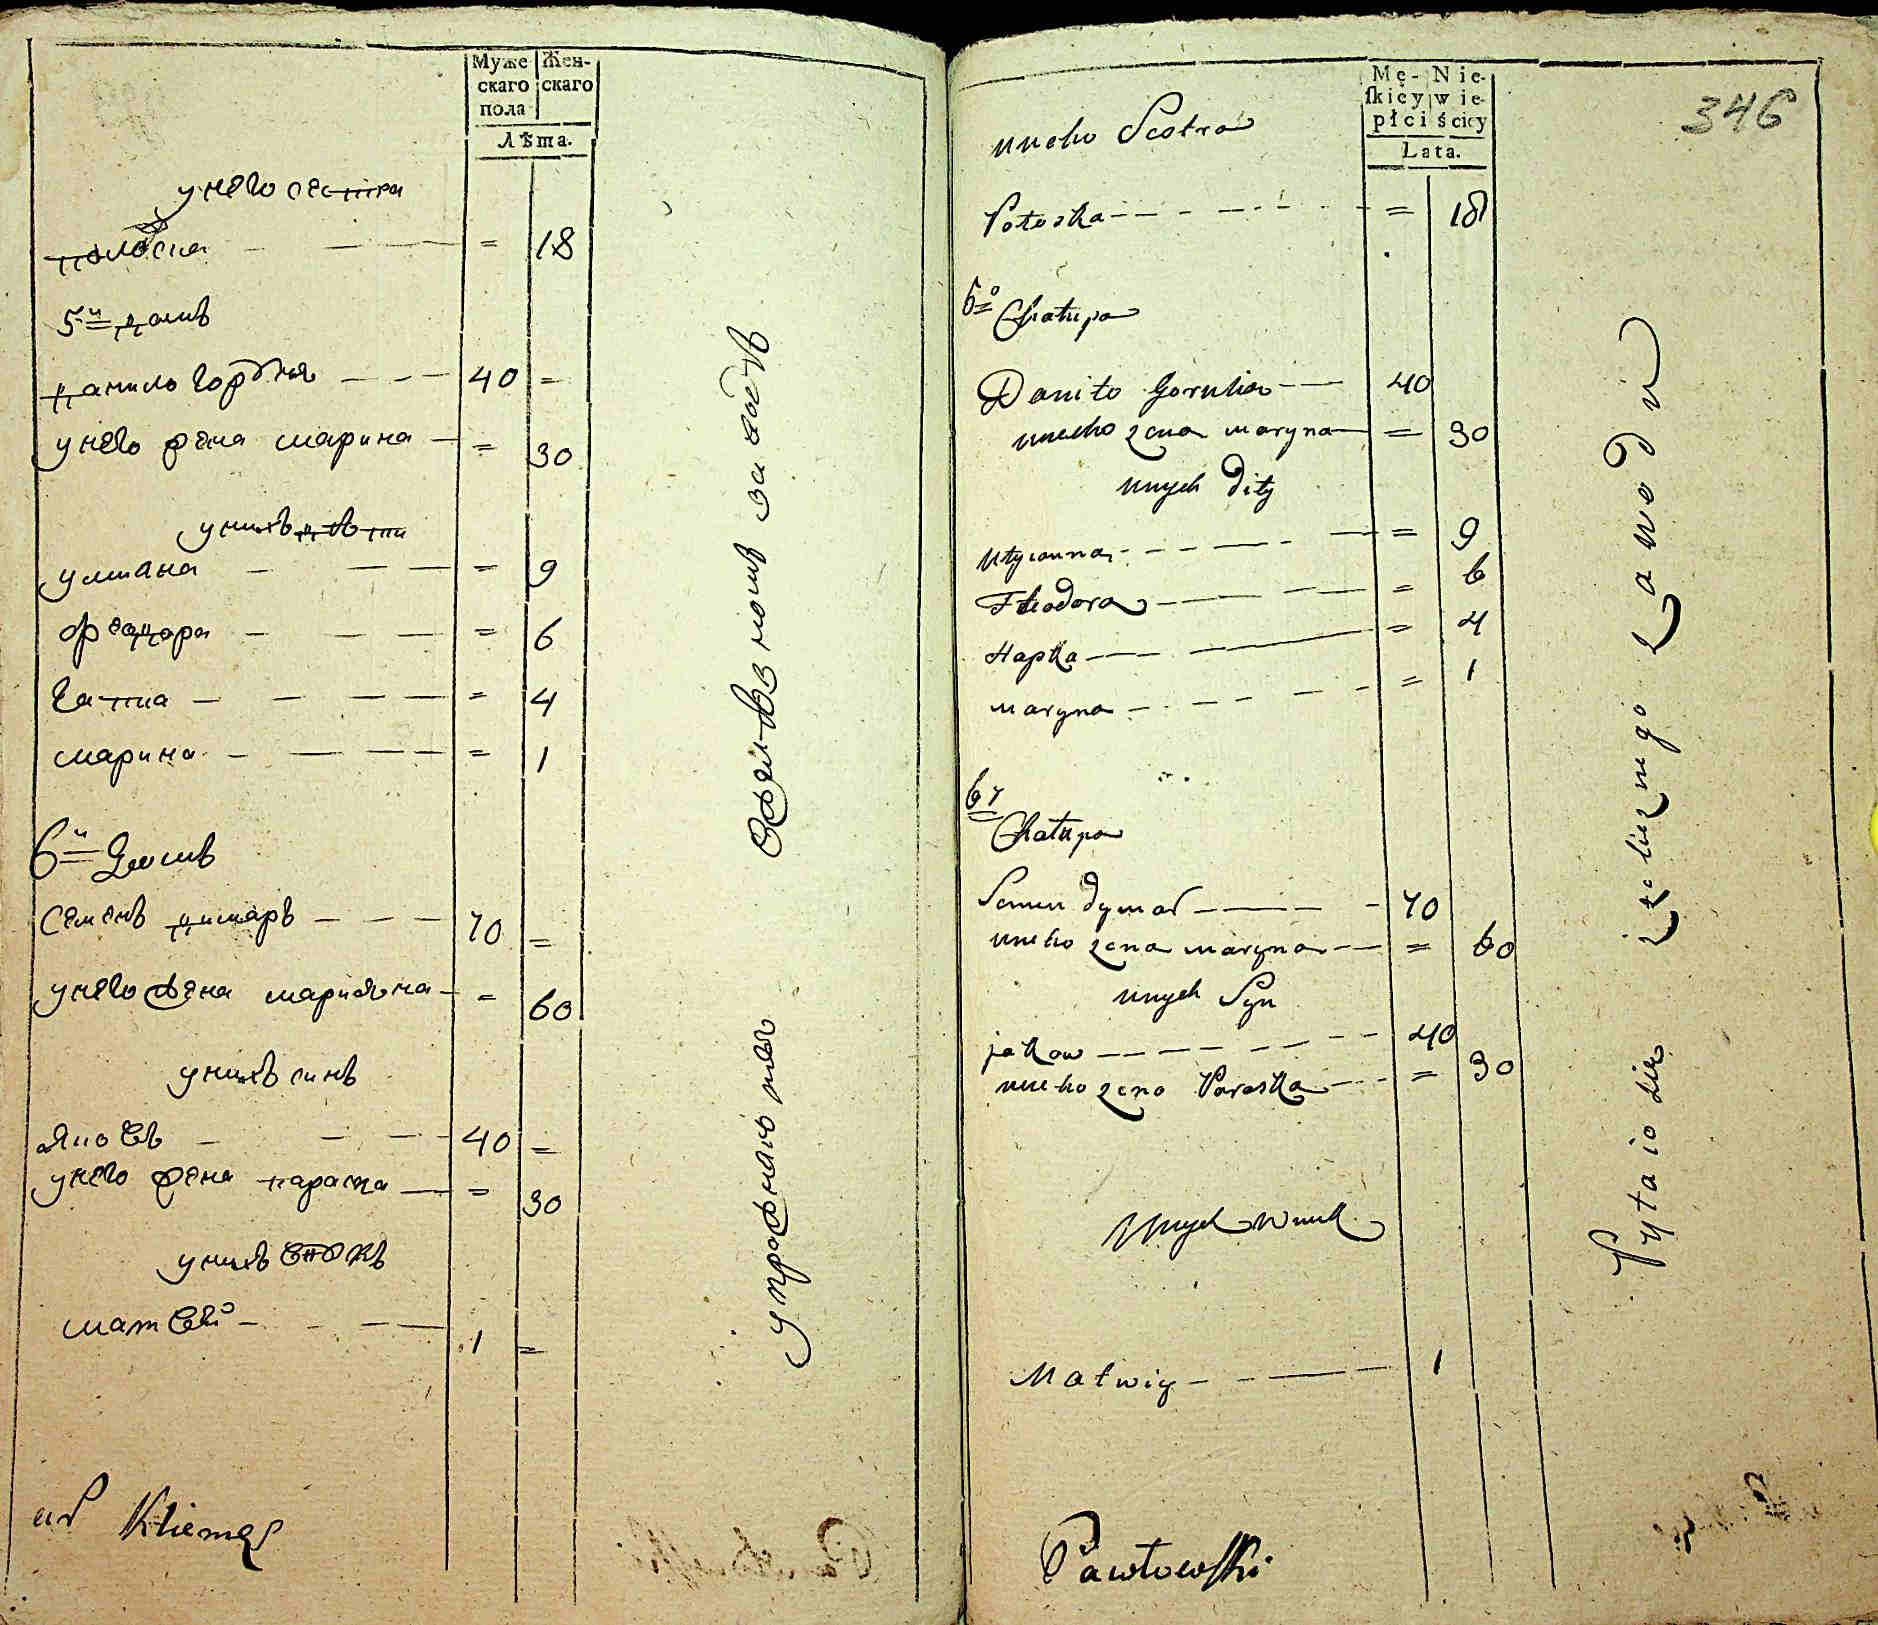 Муже
скаго
пола
Жен-
скаго
Лѣта.
у него сестра
= 18
5й домъ
данило горбня 40 =
у него жена марина = 30
у нихъ дѣти
улиана = 9
феодора = 6
гапка = 4
марина = 1
6й домъ
Семенъ димаръ 70 =
у него жена марияна = 60
у нихъ синъ
Яковъ 40 =
у него жена параска = 30
у нихъ внукъ
матвѣй 1 =
Kliemes
упражнаютъся
заводъ
346
Mę-
skiéy
płci
Nie-
wie-
ściéy
Lata.
uneho Sestra
Potoska = 18
6º
Chałupa
Daniło Gorulia 40
uneho zena maryna = 30
unych dity
Ulyanna = 9
Fheodora = 6
Hapka = 4
maryna = 1
67
Chałupa
Semen dymar 70
uneho zena maryna = 60
unych Syn
jakow 40
uneho zena Paraska = 30
Unych wnuk
Matwiy 1
Pawłowski